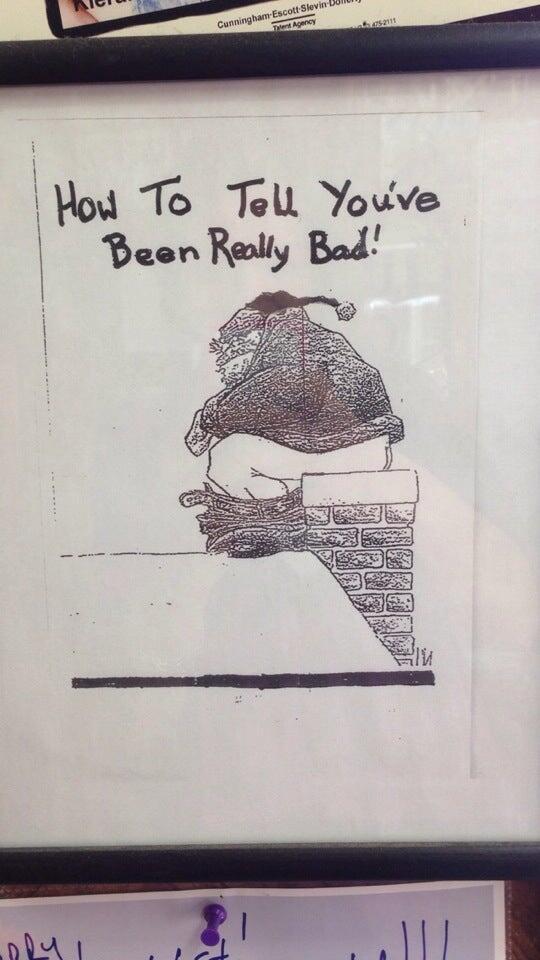 Cunningham-Escott-Slevin-Doherty
Talent Agency
475-2111
How To Tell You've
Been Really Bad!